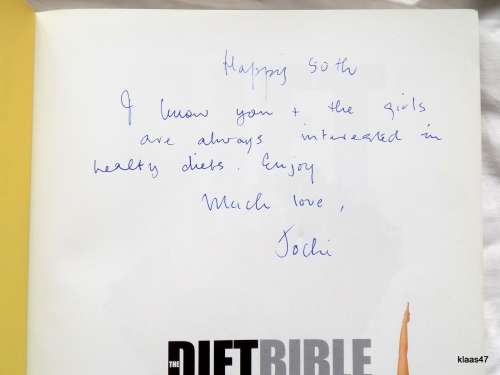 Happy 50th
I know you + the girls
are always interested in
healty diets. Enjoy
Much love,
Jochi
THE DIET BIBLE
klaas47